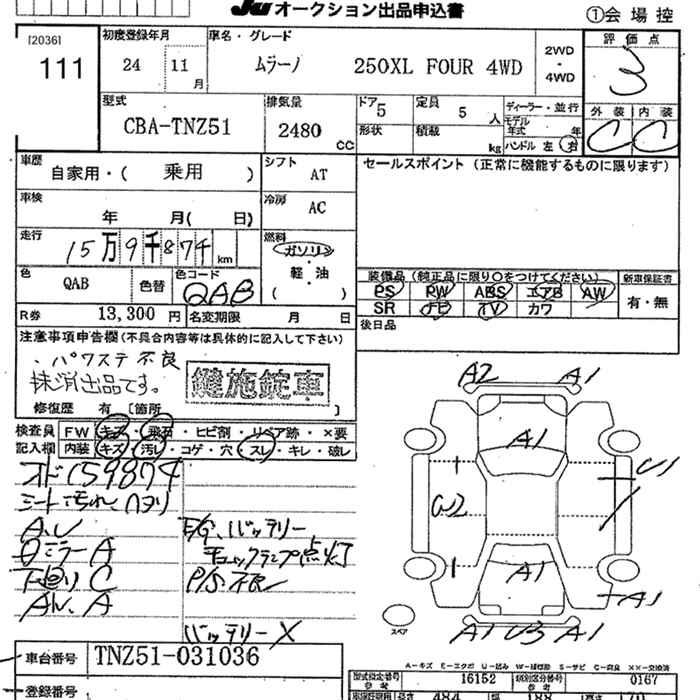 JU オークション出品申込書
①会場控
[2036]
111
初度登録年月
24 11月
車名・グレード
ムラーノ 250XL FOUR 4WD
2WD
・
4WD
評価点
3
型式
CBA-TNZ51
排気量
2480 CC
ドア 5
定員 5 人
形状
積載 kg
ディーラー・並行
モデル年式 年
ハンドル 左 右
外装 内装
C C
車歴
自家用・( 乗用 )
シフト
AT
セールスポイント(正常に機能するものに限ります)
車検
年 月( 日)
冷房
AC
走行
15万9千874 km
燃料
ガソリン
・
軽・油
( )
色
QAB
色替
色コード
QAB
装備品(純正品に限り○をつけてください)
新車保証書
PS PW ABS エアB AW
有・無
SR ナビ TV カワ
R券 13,300 円
名変期限 月 日
後日品
注意事項申告欄(不具合内容等は具体的に記入して下さい)
、パワステ不良
抹消出品です。
鍵施錠車
修復歴 有 [箇所 ]
検査員 FW キズ・飛石・ヒビ割・リペア跡・×要
記入欄 内装 キズ・汚レ・コゲ・穴・スレ・キレ・破レ
オド159874
シート汚れ、ヘタリ
E/G、バッテリー
チェックランプ点灯
ミラーA
下廻りC
P/S不良
バッテリーX
A2 A1
A1
U1
W2
A1
A1
A1 U3 A1
スペア
車台番号 TNZ51-031036
登録番号
A-キズ E-エクボ U-凹み W-補修跡 S-サビ C-腐蝕 XX-交換済
型式指定番号 16152
類別区分番号 0167
484 188 170